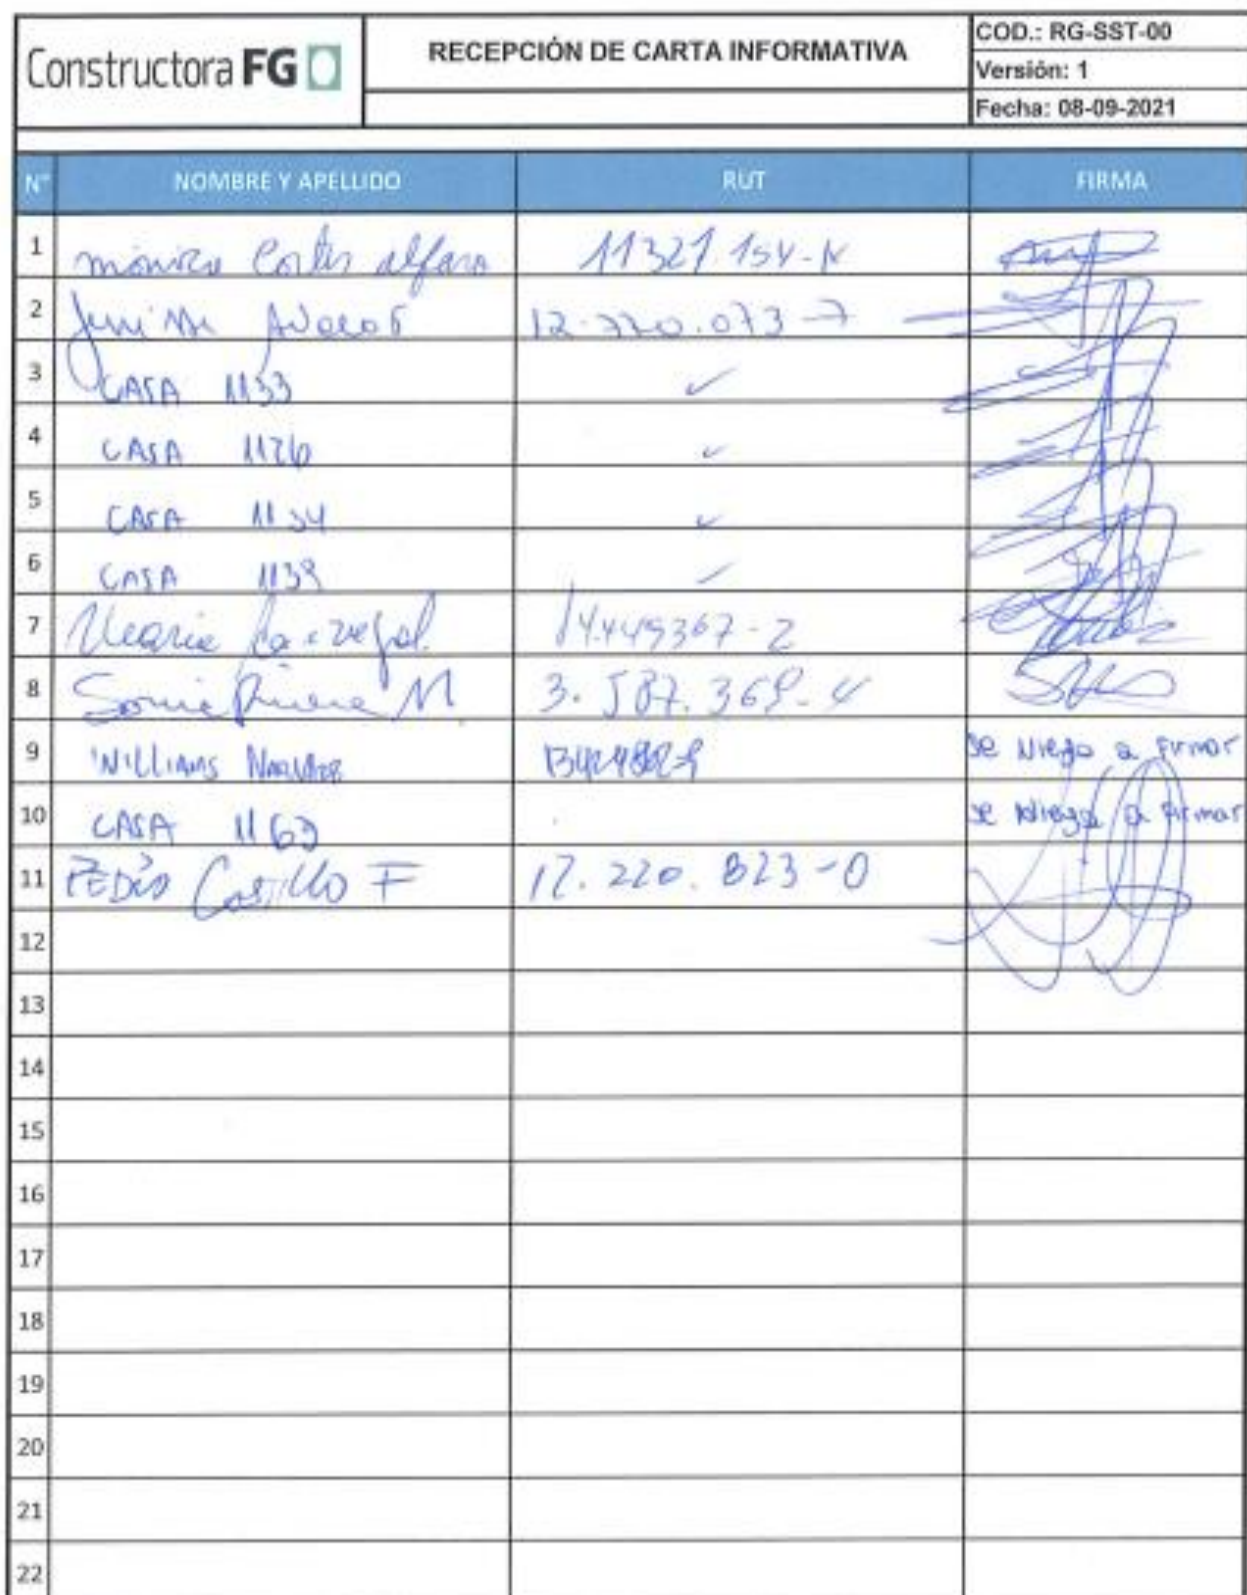 Constructora FG
RECEPCIÓN DE CARTA INFORMATIVA
COD.: RG-SST-00
Versión: 1
Fecha: 08-09-2021
N° NOMBRE Y APELLIDO RUT FIRMA
1 mónica Cortés alfaro 11321.154-
2 12.720.073-7
3 CASA 1133 ✓
4 CASA 1126 ✓
5 CASA 1134 ✓
6 CASA 1139 ✓
7 Maria Carvajal. 14.449367-2
8 Sonia Rivera M 3.587.369-4
9 WILLIAMS se niega a firmar
10 CASA 1163 se niega a firmar
11 PEDRO Castillo F 17.220.823-0
12
13
14
15
16
17
18
19
20
21
22